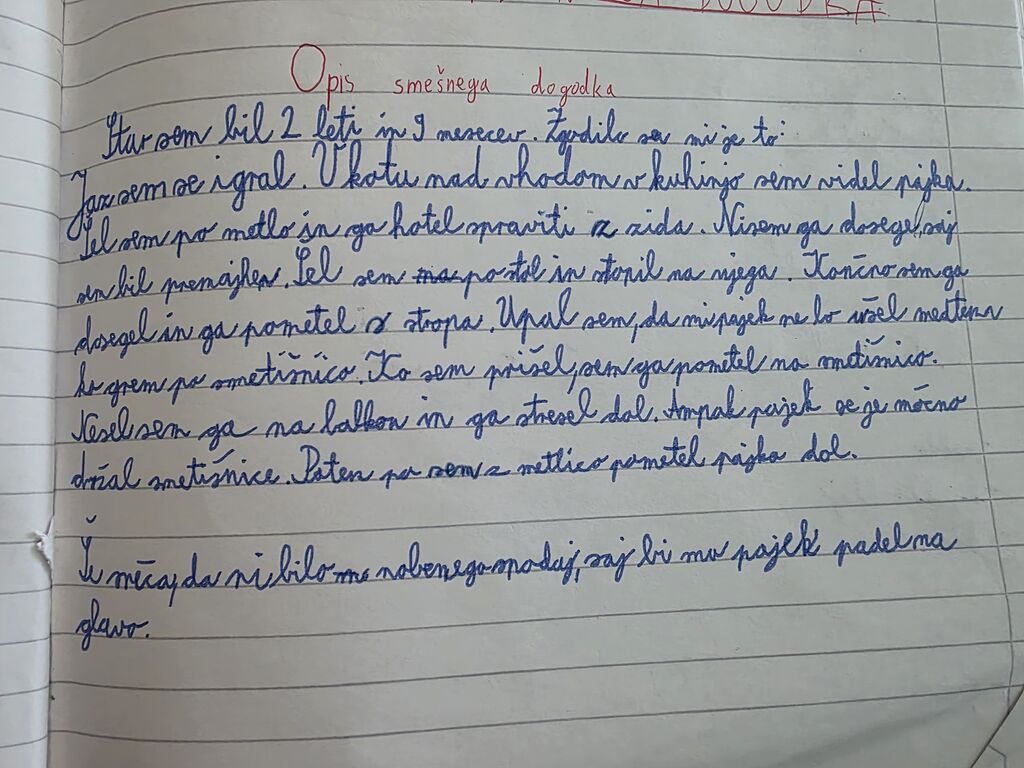 DOGODKA
Opis smešnega dogodka
Star sem bil 2 leti in 9 mesecev. Zgodilo se mi je to:
Jaz sem se igral. V kotu nad vhodom v kuhinjo sem videl pajka.
Šel sem po metlo in ga hotel spraviti z zida. Nisem ga dosegel, saj
sem bil premajhen. Šel sem po stol in stopil na njega. Končno sem ga
dosegel in ga pometel s stropa. Upal sem, da mi pajek ne bo ušel medtem
ko grem po smetišnico. Ko sem prišel, sem ga pometel na smetišnico.
Nesel sem ga na balkon in ga stresel dol. Ampak pajek se je močno
držal smetišnice. Potem pa sem z metlico pometel pajka dol.
Še sreča, da ni bilo nobenega spodaj, saj bi mu pajek padel na
glavo.